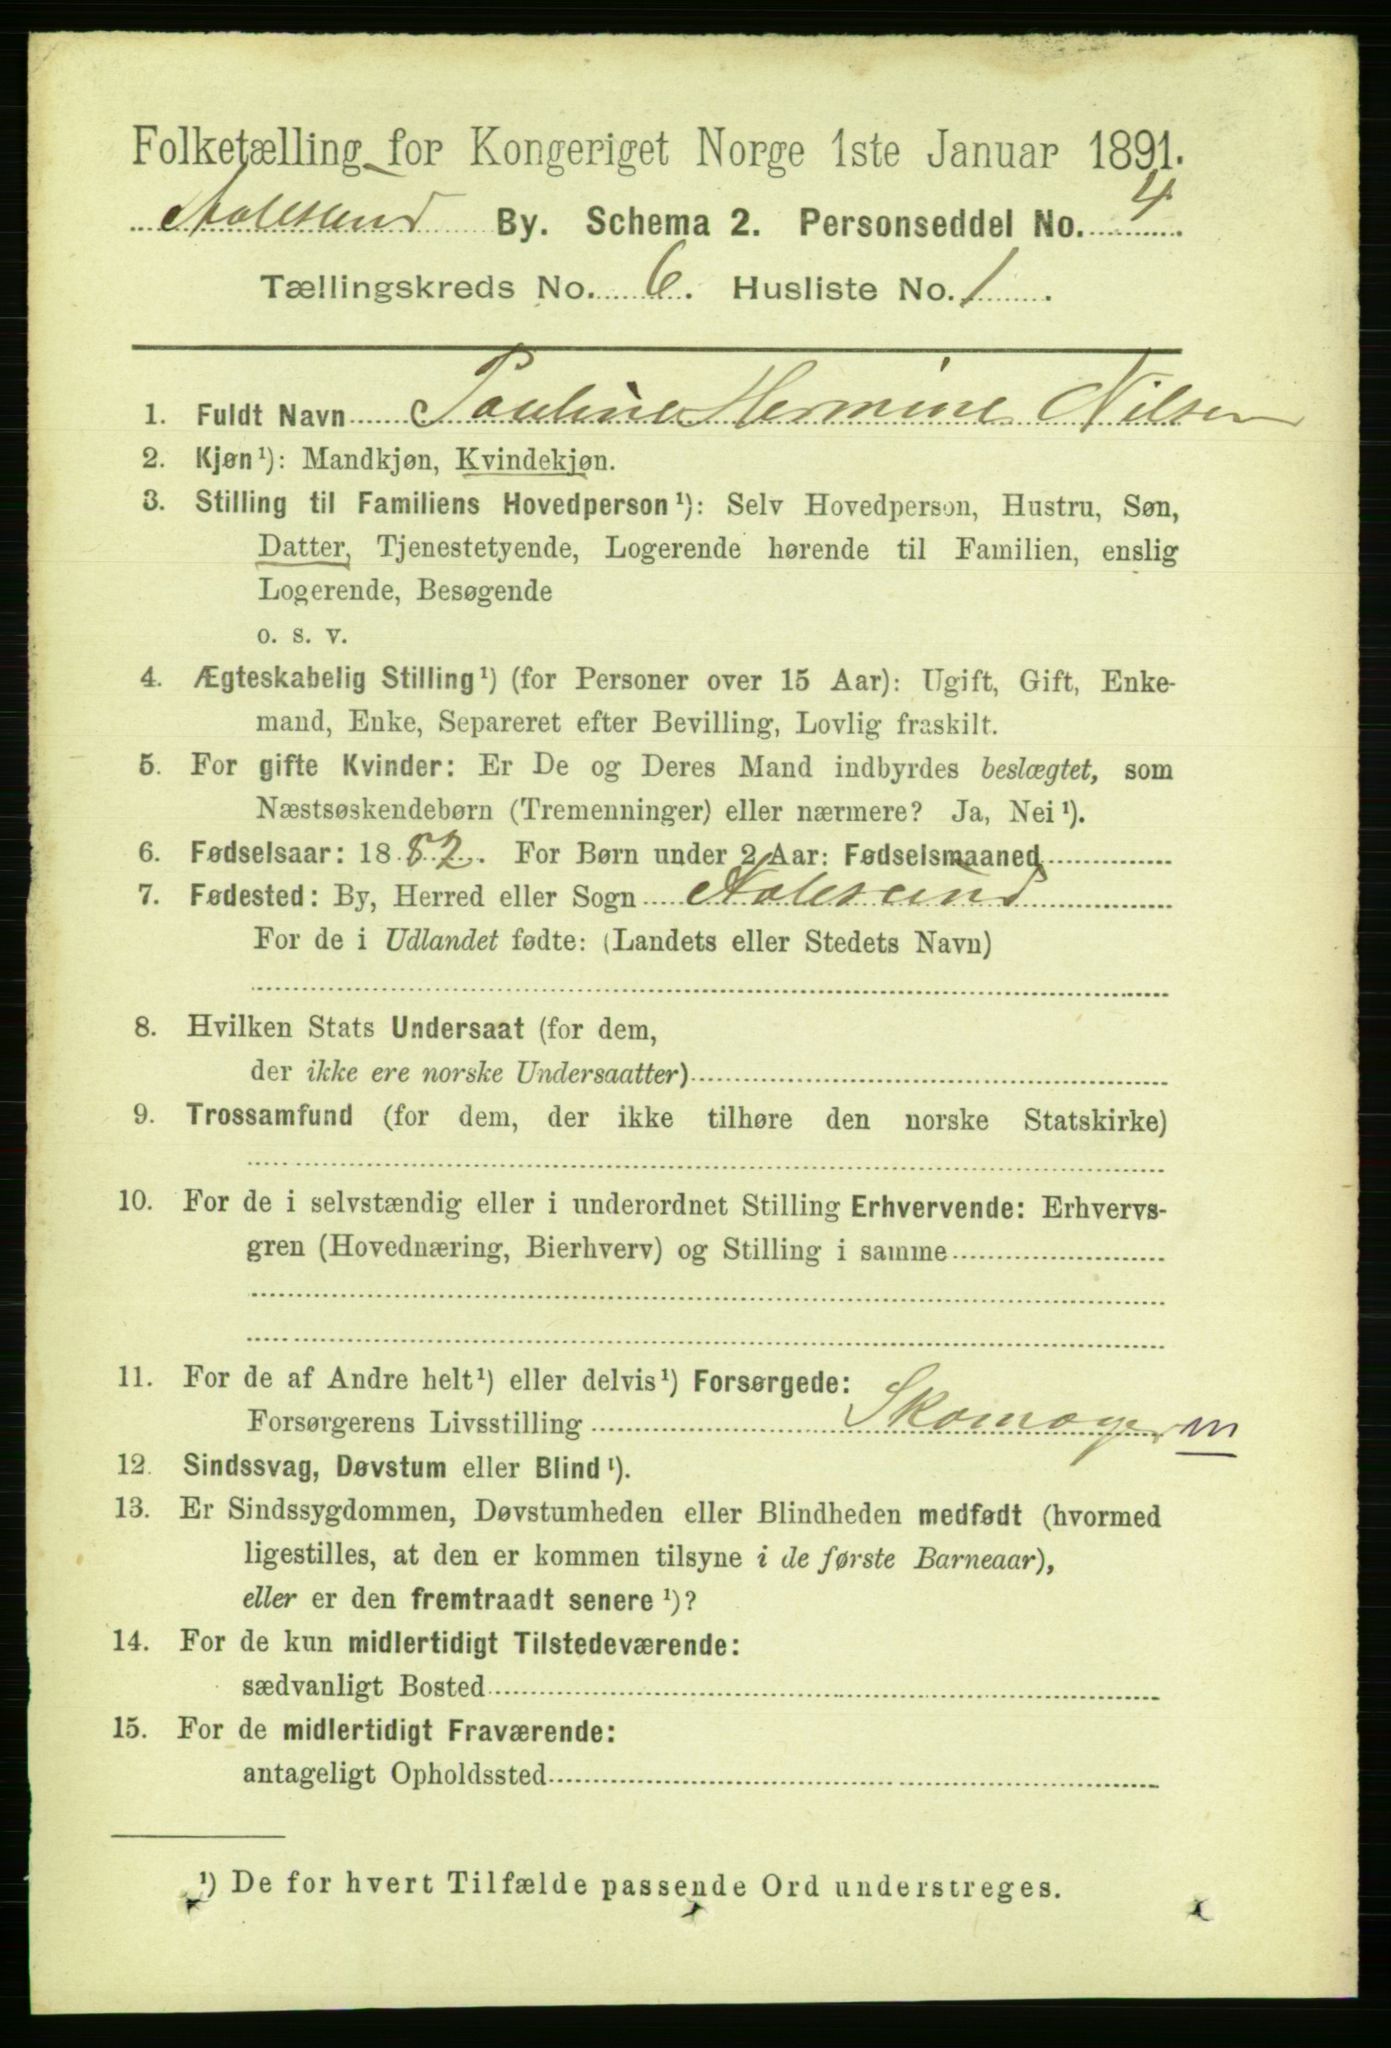 Folketælling for Kongeriget Norge 1ste Januar 1891.
Aalesund By. Schema 2. Personseddel No. 4
Tællingskreds No. 6. Husliste No. 1.
1. Fuldt Navn Pauline Hermine Nilsen
2. Kjøn¹): Mandkjøn, Kvindekjøn.
3. Stilling til Familiens Hovedperson¹): Selv Hovedperson, Hustru, Søn,
Datter, Tjenestetyende, Logerende hørende til Familien, enslig
Logerende, Besøgende
o. s. v.
4. Ægteskabelig Stilling¹) (for Personer over 15 Aar): Ugift, Gift, Enke-
mand, Enke, Separeret efter Bevilling, Lovlig fraskilt.
5. For gifte Kvinder: Er De og Deres Mand indbyrdes beslægtet, som
Næstsøskendebørn (Tremenninger) eller nærmere? Ja, Nei¹).
6. Fødselsaar: 1882. For Børn under 2 Aar: Fødselsmaaned
7. Fødested: By, Herred eller Sogn Aalesund
For de i Udlandet fødte: (Landets eller Stedets Navn)
8. Hvilken Stats Undersaat (for dem,
der ikke ere norske Undersaatter)
9. Trossamfund (for dem, der ikke tilhøre den norske Statskirke)
10. For de i selvstændig eller i underordnet Stilling Erhvervende: Erhvervs-
gren (Hovednæring, Bierhverv) og Stilling i samme
11. For de af Andre helt¹) eller delvis¹) Forsørgede:
Forsørgerens Livsstilling Skomager m
12. Sindssvag, Døvstum eller Blind¹).
13. Er Sindssygdommen, Døvstumheden eller Blindheden medfødt (hvormed
ligestilles, at den er kommen tilsyne i de første Barneaar),
eller er den fremtraadt senere¹)?
14. For de kun midlertidigt Tilstedeværende:
sædvanligt Bosted
15. For de midlertidigt Fraværende:
antageligt Opholdssted
¹) De for hvert Tilfælde passende Ord understreges.